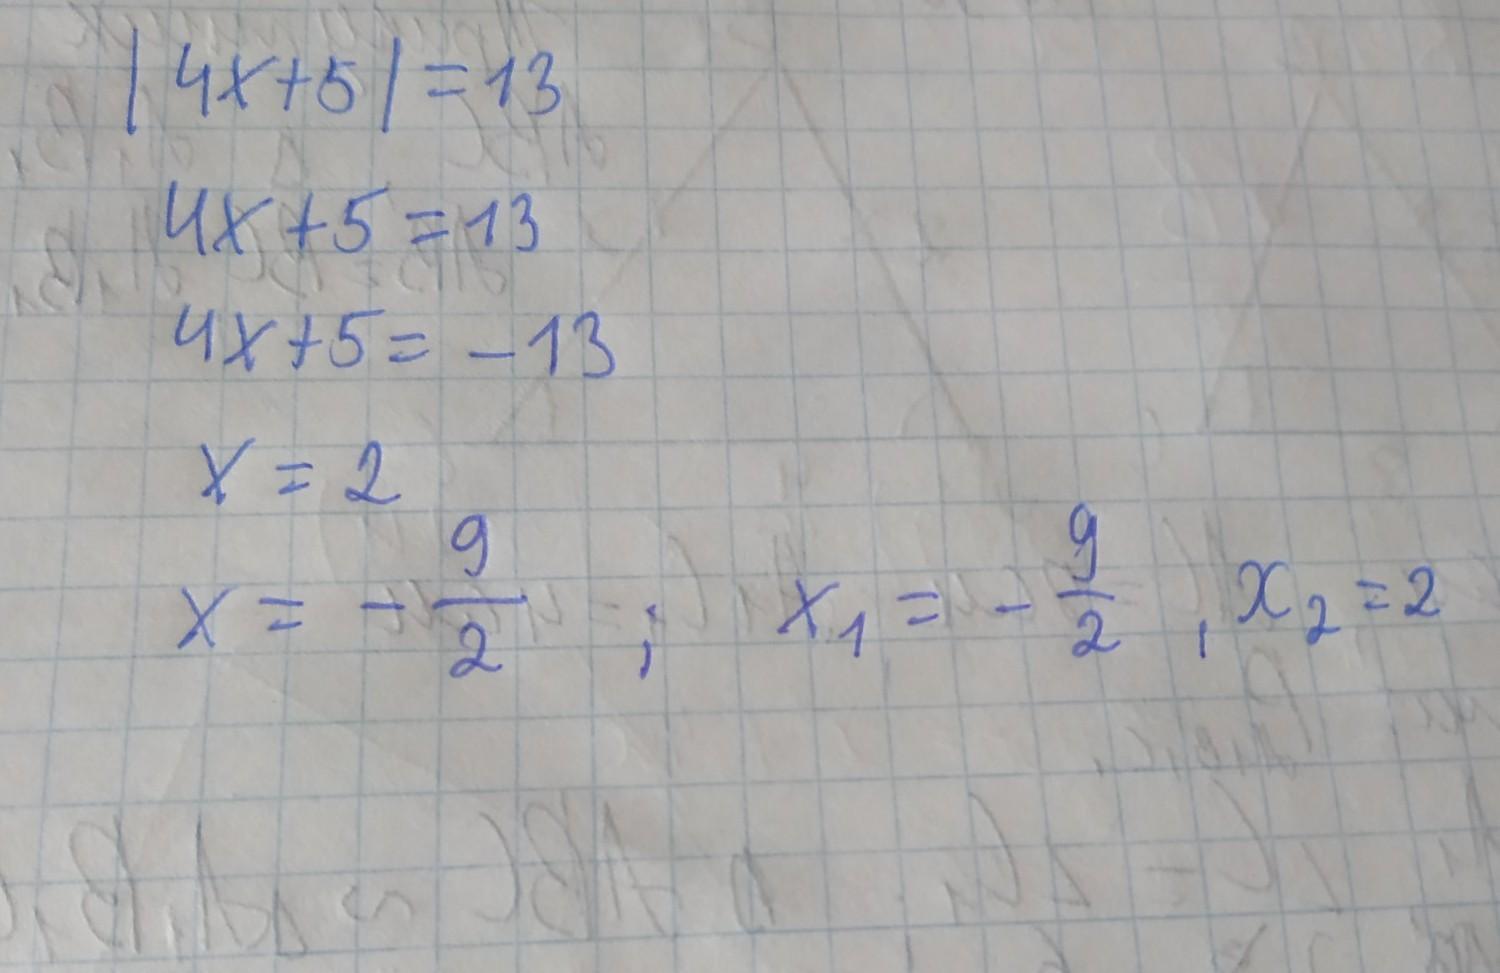 |4x+5|=13
4x+5=13
4x+5=-13
x=2
x=-9/2; x₁=-9/2, x₂=2